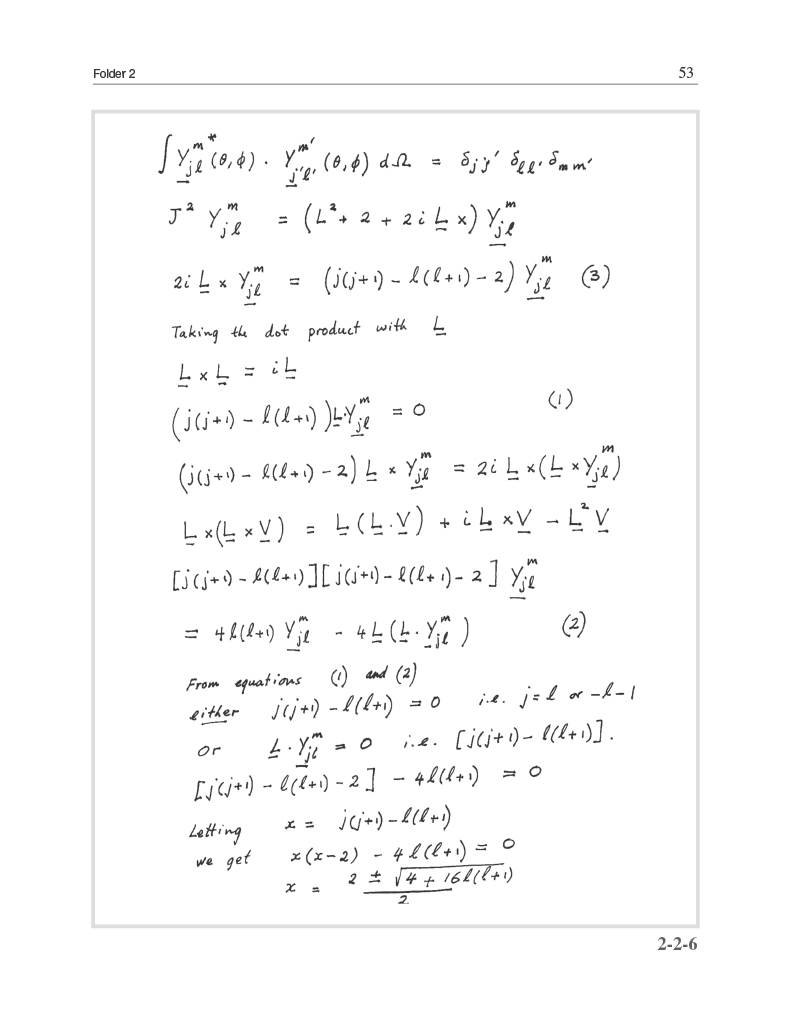 Folder 2 53
∫ Y_{jℓ}^{m*} (θ,φ) · Y_{j'ℓ'}^{m'} (θ,φ) dΩ = δ_{jj'} δ_{ℓℓ'} δ_{mm'}
J² Y_{jℓ}^m = (L² + 2 + 2i L ×) Y_{jℓ}^m
2i L × Y_{jℓ}^m = (j(j+1) - ℓ(ℓ+1) - 2) Y_{jℓ}^m (3)
Taking the dot product with L
L × L = iL
(j(j+1) - ℓ(ℓ+1)) L·Y_{jℓ}^m = 0 (1)
(j(j+1) - ℓ(ℓ+1) - 2) L × Y_{jℓ}^m = 2i L × (L × Y_{jℓ}^m)
L × (L × V) = L (L · V) + i L × V - L² V
[j(j+1) - ℓ(ℓ+1)][j(j+1) - ℓ(ℓ+1) - 2] Y_{jℓ}^m
= 4ℓ(ℓ+1) Y_{jℓ}^m - 4L (L · Y_{jℓ}^m) (2)
From equations (1) and (2)
either j(j+1) - ℓ(ℓ+1) = 0 i.e. j = ℓ or -ℓ-1
or L · Y_{jℓ}^m = 0 i.e. [j(j+1) - ℓ(ℓ+1)].
[j(j+1) - ℓ(ℓ+1) - 2] - 4ℓ(ℓ+1) = 0
Letting x = j(j+1) - ℓ(ℓ+1)
we get x(x-2) - 4ℓ(ℓ+1) = 0
x = (2 ± √(4 + 16ℓ(ℓ+1))) / 2
2-2-6